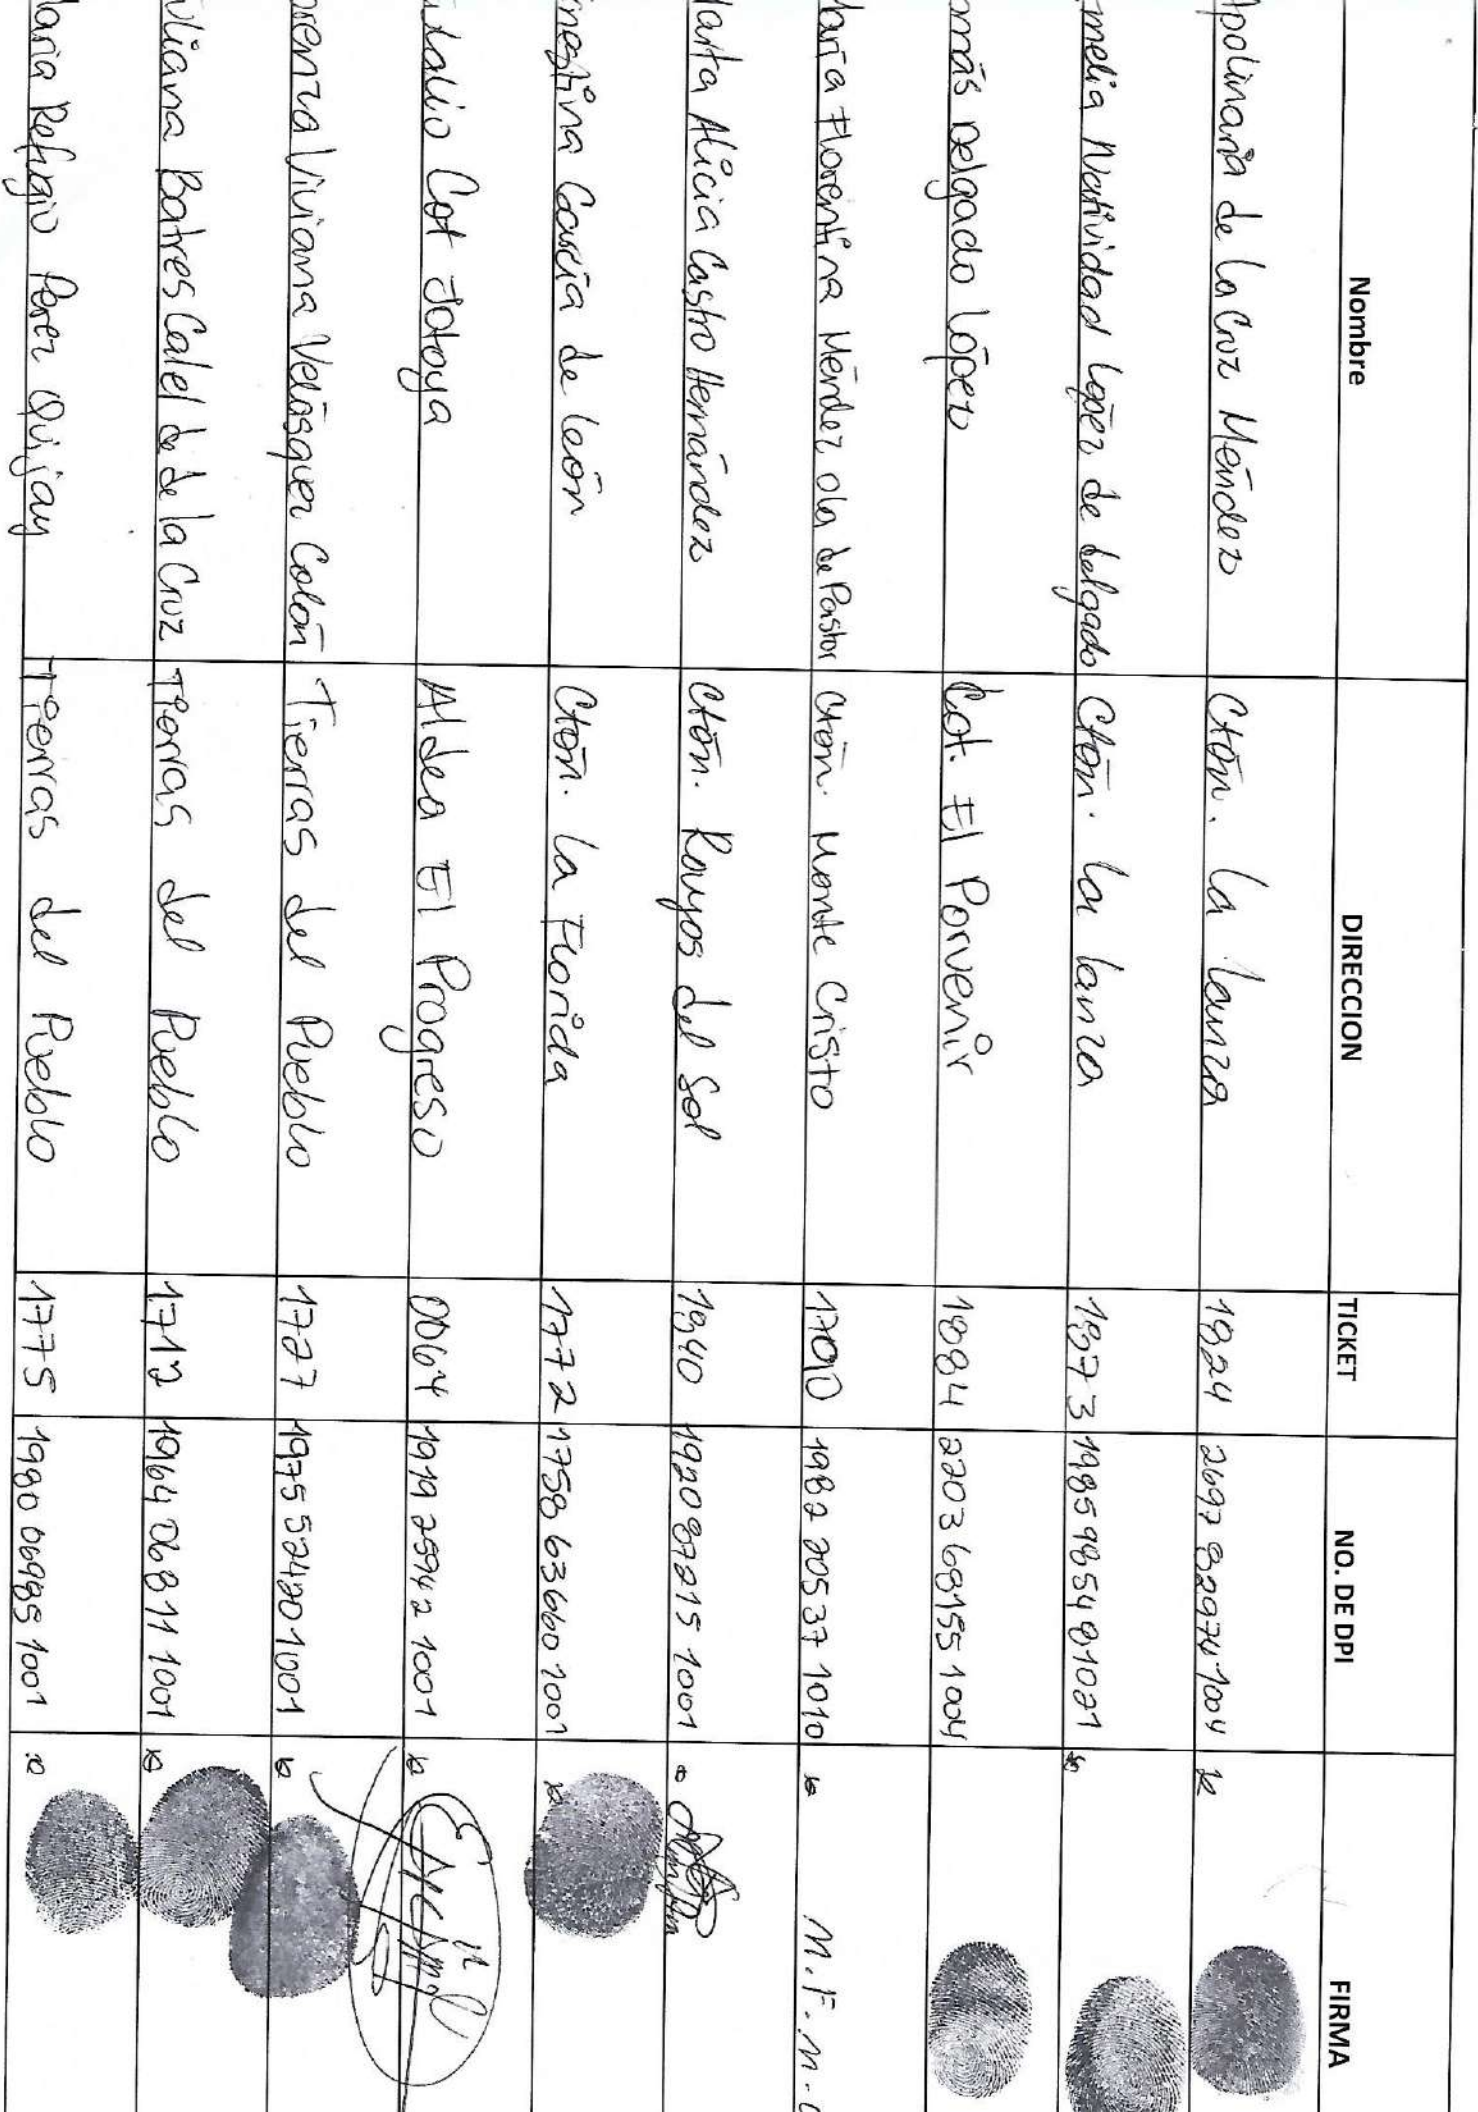 Nombre DIRECCION TICKET NO. DE DPI FIRMA
Apolinaria de La Cruz Méndez Ctón. La Lanza 1824 2697 82974 1004
melia Natividad López de Delgado Ctón. La Lanza 1873 1985 98548 1021
omás Delgado López Lot. El Porvenir 1884 2203 68155 1004
María Florentina Méndez Ola de Pastor Ctón. Monte Cristo 1700 1982 20537 1010 M.F.M.
Marta Alicia Castro Hernández Ctón. Rayos del Sol 1840 1920 87215 1001
nestina García de León Ctón. La Florida 1772 1758 63660 1001
Cot Jotoya Aldea El Progreso 0064 1919 25942 1001
orenza Viviana Velásquez Colón Tierras del Pueblo 1727 1975 52420 1001
uliana Batres Calel de de la Cruz Tierras del Pueblo 1712 1964 06811 1001
María Refugio Perez Quijay Tierras del Pueblo 1775 1980 06985 1001